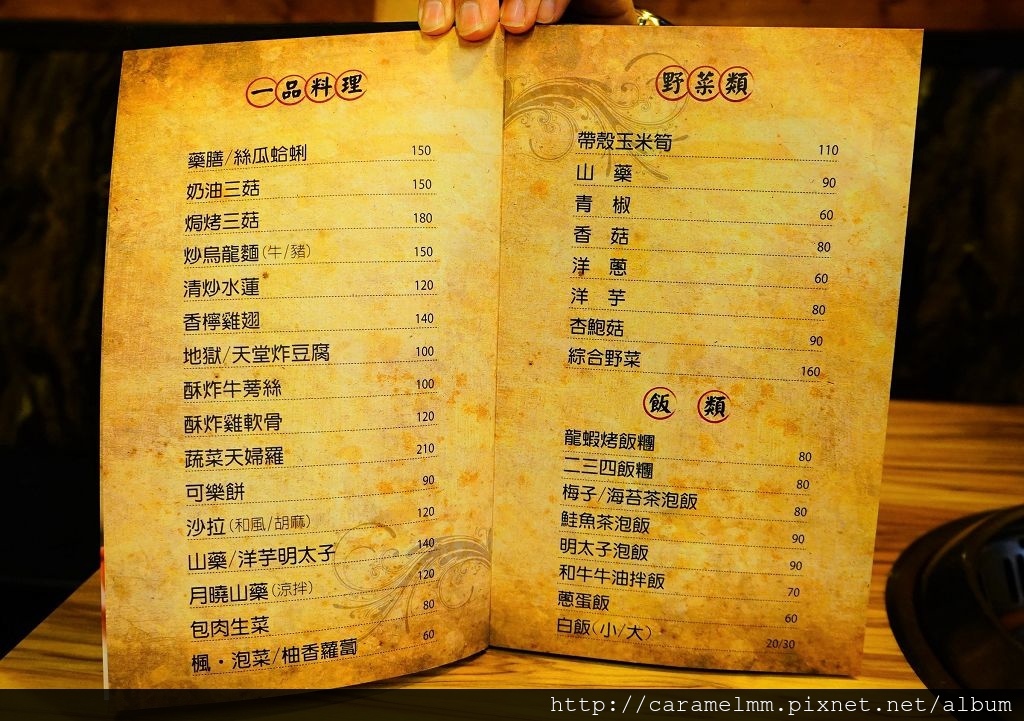 一品料理
藥膳/絲瓜蛤蜊 150
奶油三菇 150
焗烤三菇 180
炒烏龍麵(牛/豬) 150
清炒水蓮 120
香檸雞翅 140
地獄/天堂炸豆腐 100
酥炸牛蒡絲 100
酥炸雞軟骨 120
蔬菜天婦羅 210
可樂餅 90
沙拉(和風/胡麻) 120
山藥/洋芋明太子 140
月曉山藥(涼拌) 120
包肉生菜 80
楓・泡菜/柚香蘿蔔 60
野菜類
帶殼玉米筍 110
山 藥 90
青 椒 60
香 菇 80
洋 蔥 60
洋 芋 80
杏鮑菇 90
綜合野菜 160
飯 類
龍蝦烤飯糰 80
二三四飯糰 80
梅子/海苔茶泡飯 80
鮭魚茶泡飯 90
明太子泡飯 90
和牛牛油拌飯 70
蔥蛋飯 60
白飯(小/大) 20/30
http://caramelmm.pixnet.net/album